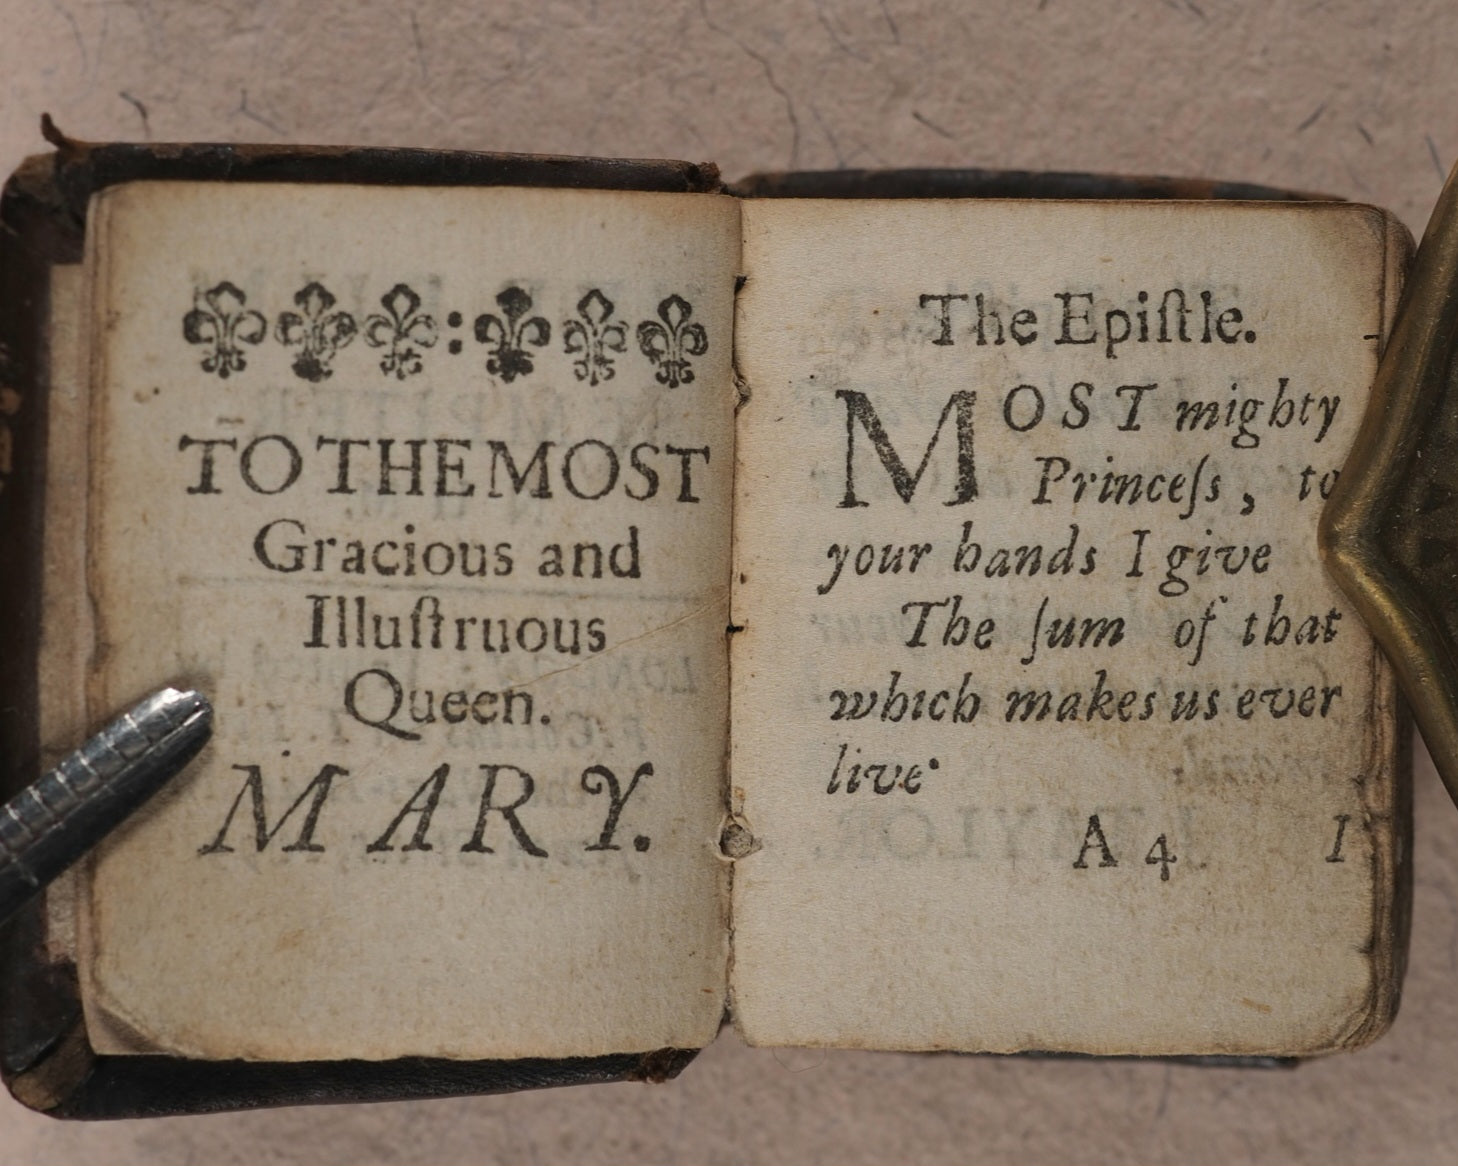 TO THE MOST
Gracious and
Illuſtruous
Queen.
MARY.
The Epiſtle.
MOST mighty
Princeſs, to
your hands I give
The ſum of that
which makes us ever
live·
A 4 I